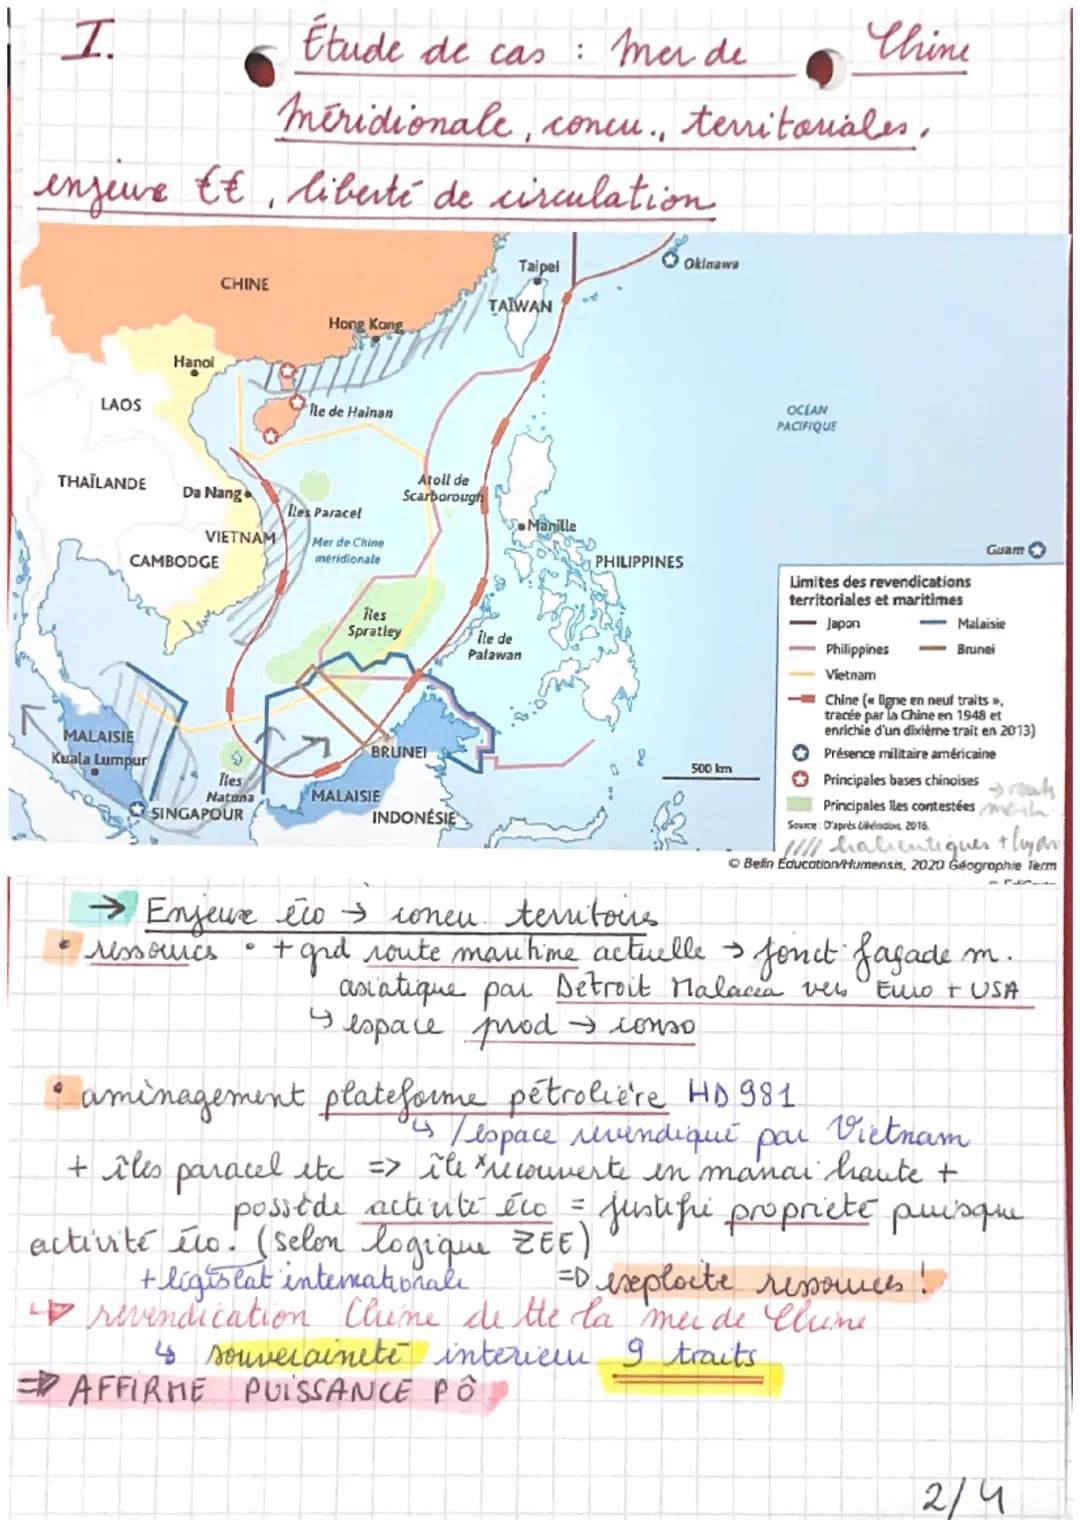 I.
Étude de cas : Mer de Chine
Méridionale, concu., territoriales,
enjeux €€, liberté de circulation
CHINE
Taipei
TAÏWAN
Okinawa
Hong Kong
Hanoï
Île de Hainan
LAOS
OCÉAN
PACIFIQUE
THAÏLANDE
Da Nang
Atoll de
Scarborough
Îles Paracel
VIETNAM
Mer de Chine
méridionale
Manille
CAMBODGE
PHILIPPINES
Guam
Îles
Spratley
Île de
Palawan
MALAISIE
Kuala Lumpur
BRUNEI
Îles
Natuna
MALAISIE
SINGAPOUR
INDONÉSIE
500 km
Limites des revendications
territoriales et maritimes
Japon
Malaisie
Philippines
Brunei
Vietnam
Chine (« ligne en neuf traits »,
tracée par la Chine en 1948 et
enrichie d'un dixième trait en 2013)
Présence militaire américaine
Principales bases chinoises
Principales îles contestées
Source : D'après Libération, 2016.
//// halieutiques + hydro
© Belin Éducation/Humensis, 2020 Géographie Term
→ Enjeux éco → concu. territoires
• ressources • + grd route maritime actuelle → fonct° façade m.
asiatique par Détroit Malacca vers Euro + USA
↳ espace prod → conso
• aménagement plateforme pétrolière HD 981
↳ / espace revendiqué par Vietnam
+ îles paracel etc => île * recouverte en marai haute +
possède activité éco = justifie propriété puisque
activité éco. (selon logique ZEE)
+ législat° internationale => exploite ressources !
↳ revendication Chine de tte la mer de Chine
↳ souveraineté intérieur 9 traits
=> AFFIRME PUISSANCE PÔ
2/4